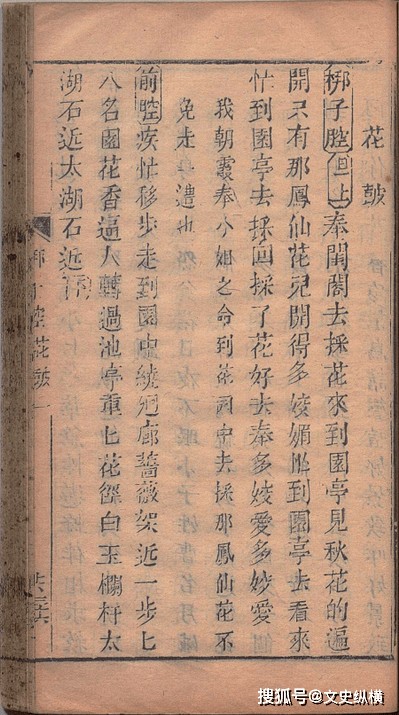 花皷
梆子腔 旦上 奉閨閣去採花來到園亭見秋花的遍
開只有那鳳仙花児開得多姣媚到園亭去看來
忙到園亭去採回採了花好去奉多姣愛多妙愛
我朝霞奉小姐之命到花園中去採那鳳仙花不
免走遭也
前腔 疾忙移步走到園中繞廻廊薔薇架近一步七
八名園花香逼人轉過池亭重七花篩白玉欄杆太
湖石近太湖石近
梆子腔花皷 一
搜狐号@文史纵横